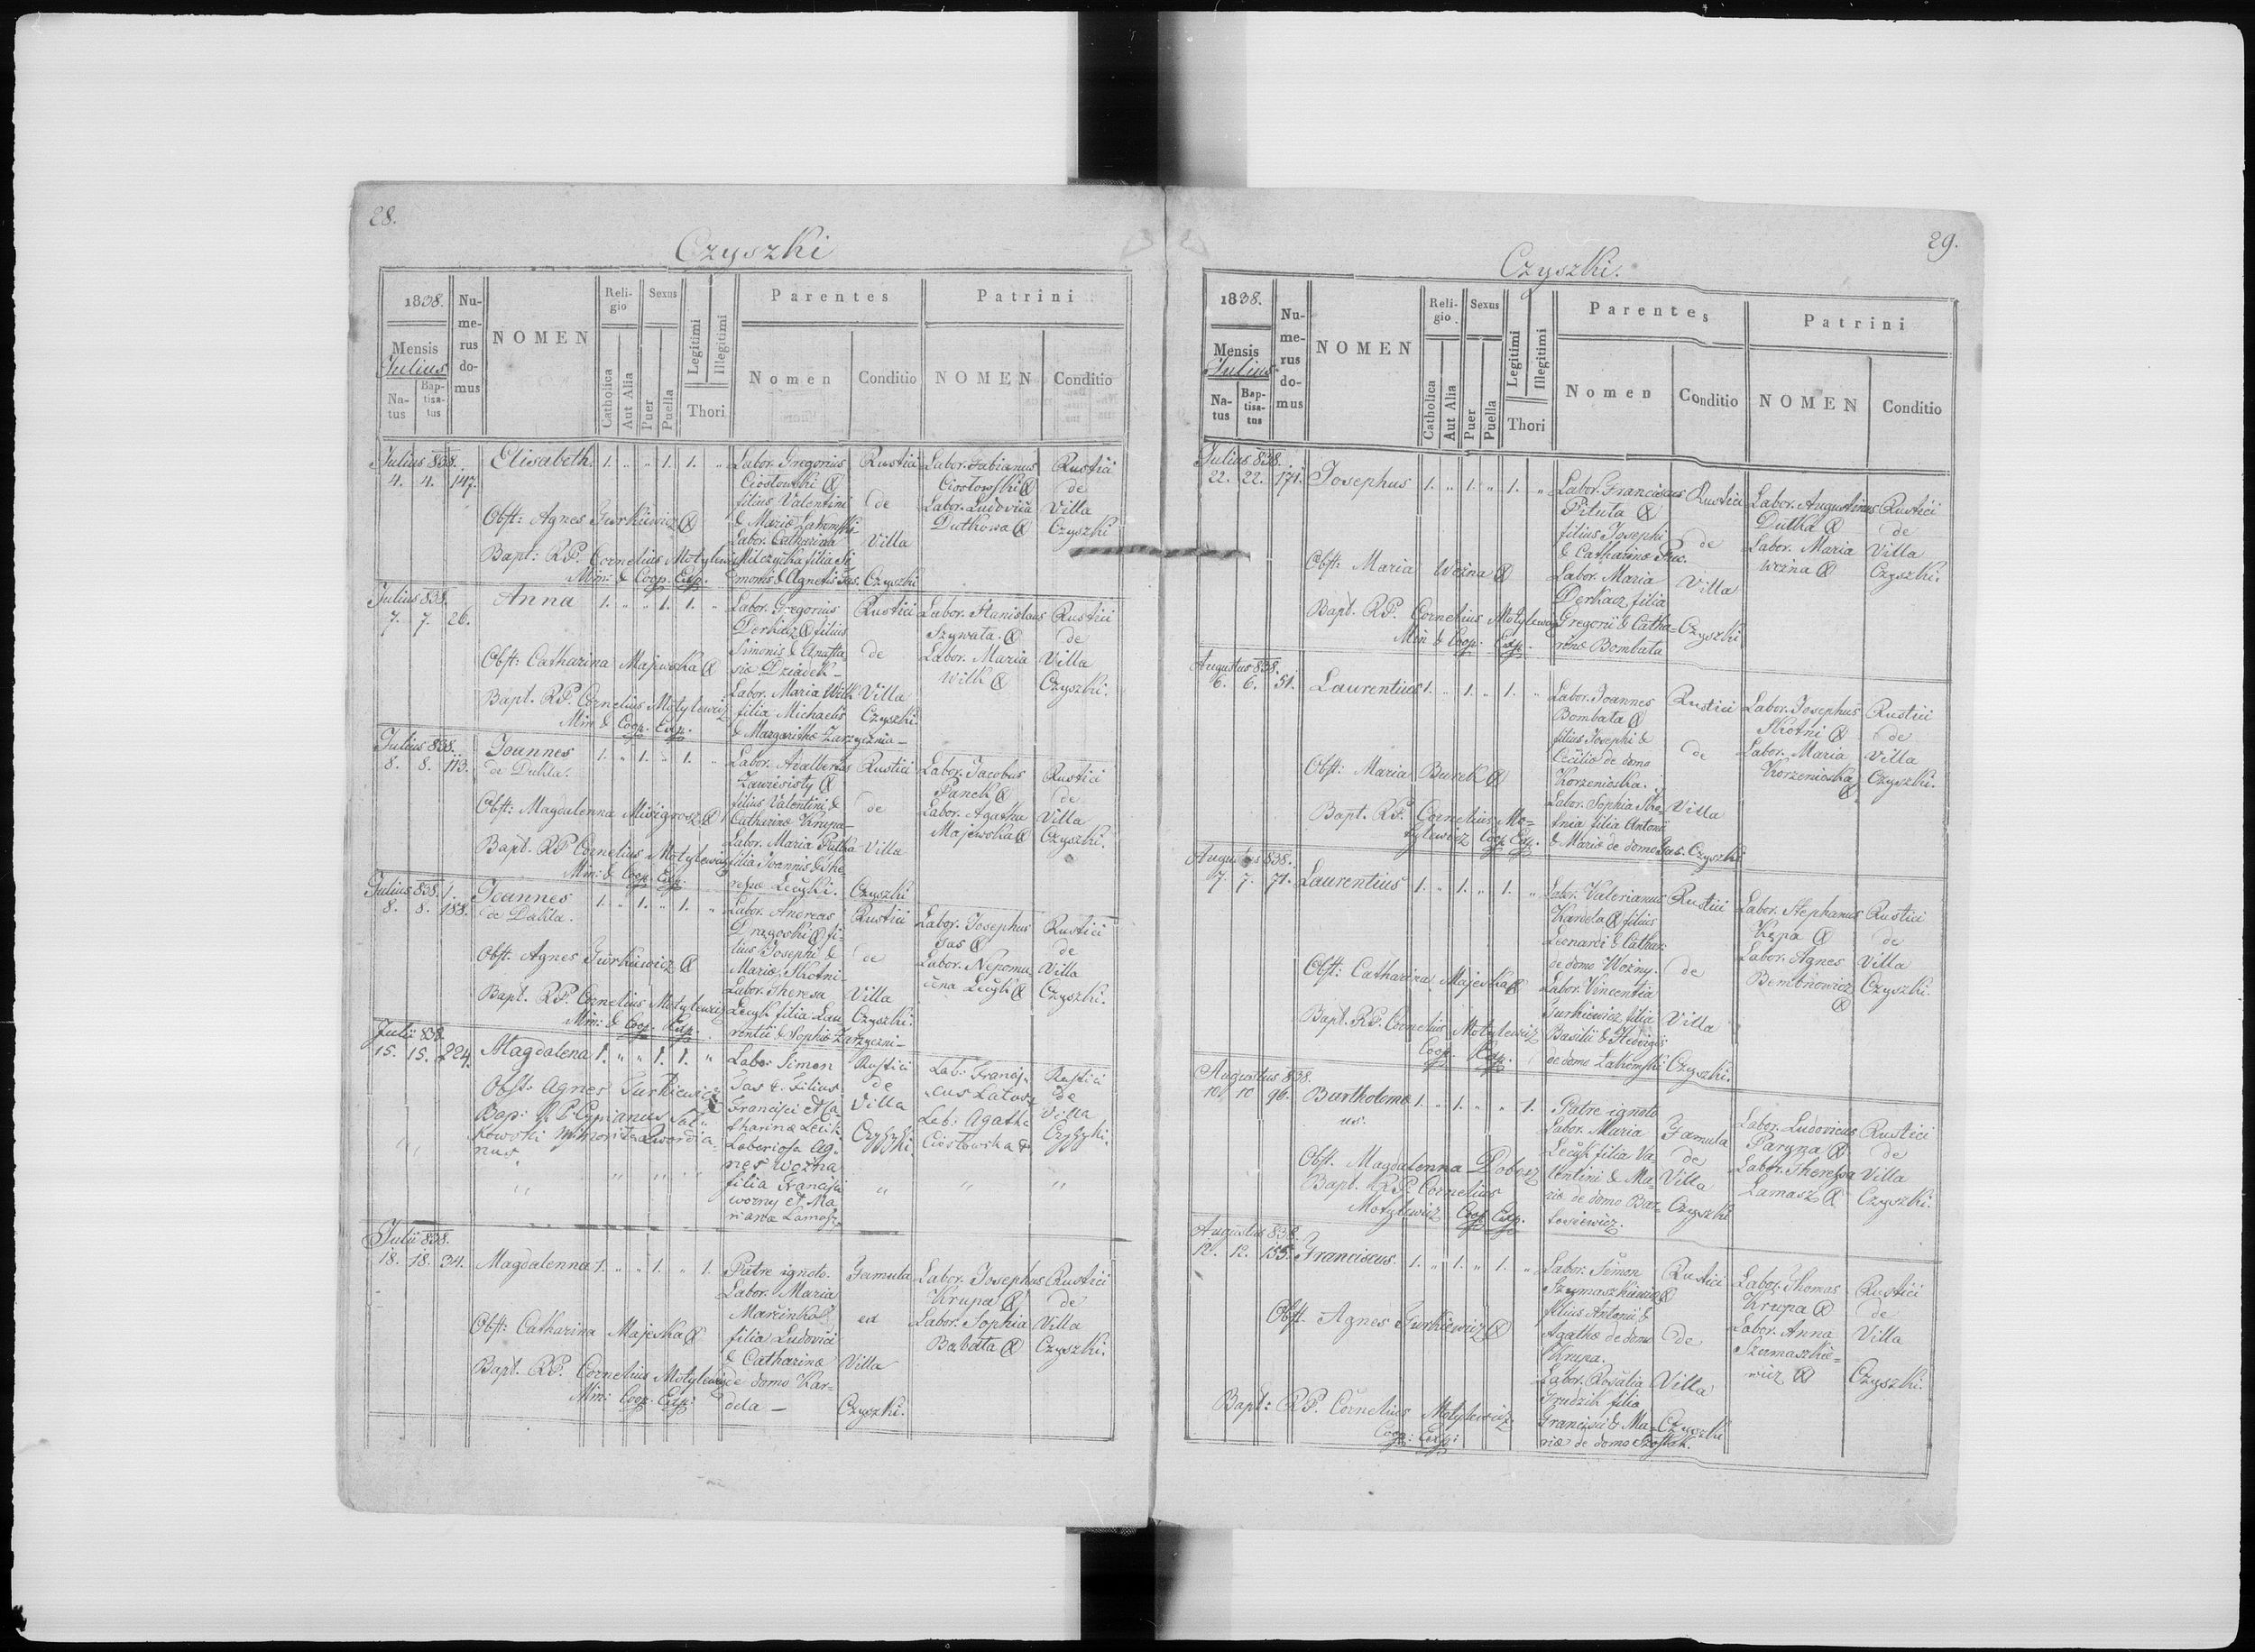 28.
Czyszki
1838.
Mensis
Julius
Natus
Baptisatus
Numerus domus
NOMEN
Religio
Catholica
Aut Alia
Sexus
Puer
Puella
Legitimi
Illegitimi
Thori
Parentes
Nomen
Conditio
Patrini
NOMEN
Conditio
Julius 838.
4. 4. 147.
Elisabeth 1. „ „ 1. 1. „
Obst: Agnes Turkiewicz
Bapt: RP. Cornelius Motylewicz
Min: & Coop. Exp.
Labor. Gregorius
Ciostowski
filius Valentini
& Mariæ
Labor. Catharina
Milczycka filia Si
monis & Agnetis Jas.
Rustici
de
Villa
Czyszki
Labor. Fabianus
Ciostowski
Labor. Ludovica
Dutkowa
Rustici
de
Villa
Czyszki
Julius 838.
7. 7. 26.
Anna 1. „ „ 1. 1. „
Obst: Catharina Majewska
Bapt. RP. Cornelius Motylewicz
Min & Coop. Exp.
Labor. Gregorius
Derkacz filius
Simonis & Anasta
siæ Dziadek
Labor. Maria Wilk
filia Michaelis
& Margarithæ
Rustici
de
Villa
Czyszki.
Labor. Stanislaus
Szywata.
Labor. Maria
Wilk
Rustici
de
Villa
Czyszki.
Julius 838.
8. 8. 113.
Joannes
de Dukla.
1. „ 1. „ 1. „
Obst: Magdalenna
Bapt. RP Cornelius Motylewicz
Min: & Coop. Exp:
Labor. Adalbertus
filius Valentini &
Catharinæ Krupa
Labor. Maria
filia Joannis & The
resæ
Rustici
de
Villa
Czyszki
Labor. Jacobus
Panek
Labor. Agatha
Majewska
Rustici
de
Villa
Czyszki.
Julius 838.
8. 8. 188.
Joannes
de Dukla.
1. „ 1. „ 1. „
Obst. Agnes Turkiewicz
Bapt. RP. Cornelius Motylewicz
Min: & Coop. Exp.
Labor. Andreas
Dragoski fi
lius Josephi &
Mariæ Skotni
Labor. Theresa
filia Lau
rentii & Sophiæ
Rustici
de
Villa
Czyszki.
Labor. Josephus
Jas
Labor. Nepomu
cena
Rustici
de
Villa
Czyszki.
Julii 838.
15. 15. 224.
Magdalena 1. „ „ 1. 1. „
Obst: Agnes Turkiewicz
Bap: R.P. Cyprianus
Labo: Simon
Jas filius
Francisci et Ca
tharinæ
Laboriosa Ag
nes Woźna
filia Francisci
Rustici
de
Villa
Czyszki
Lab: Francis
cus
Lab: Agatha
Ciostowska
Rustici
de
Villa
Czyszki.
Julii 838.
18. 18. 34.
Magdalenna 1. „ „ 1. „ 1.
Obst: Catharina Majeska
Bapt. RP. Cornelius Motylewicz
Min: Coop. Exp:
Patre ignoto.
Labor. Maria
Marcinko
filia Ludovici
& Catharinæ
de domo Kar
dela
Famula
ex
Villa
Czyszki.
Labor. Josephus
Krupa
Labor. Sophia
Babata
Rustici
de
Villa
Czyszki.
29.
Czyszki.
1838.
Mensis
Julius
Natus
Baptisatus
Numerus domus
NOMEN
Religio
Catholica
Aut Alia
Sexus
Puer
Puella
Legitimi
Illegitimi
Thori
Parentes
Nomen
Conditio
Patrini
NOMEN
Conditio
Julius 838.
22. 22. 171.
Josephus 1. „ 1. „ 1. „
Obst: Maria Woźna
Bapt. RP. Cornelius Motylewicz
Min & Coop: Exp.
Labor. Franciscus
Pituta
filius Josephi
& Catharinæ
Labor. Maria
Derkacz filia
Gregorii & Catha-
rinæ Bombata
Rustici
de
Villa
Czyszki
Labor. Augustinus
Dutka
Labor. Maria
Woźna
Rustici
de
Villa
Czyszki.
Augustus 838.
6. 6. 51.
Laurentius 1. „ 1. „ 1. „
Obst: Maria Burek
Bapt. RP. Cornelius Mo-
tylewicz Coop Exp.
Labor. Joannes
Bombata
filius Josephi &
Ceciliæ de domo
Korzenioska.
Labor. Sophia Sko-
tnia filia Antonii
& Mariæ de domo Jas.
Rustici
de
Villa
Czyszki
Labor. Josephus
Skotni
Labor. Maria
Korzenioska
Rustici
de
Villa
Czyszki.
Augustus 838.
7. 7. 71.
Laurentius 1. „ 1. „ 1. „
Obst: Catharina Majeska
Bapt. RP. Cornelius Motylewicz
Coop. Exp.
Labor. Valerianus
Kardela filius
Leonardi & Cathar:
de domo Woźny.
Labor. Vincentia
Turkiewicz filia
Basilii & Hedvigis
de domo
Rustici
de
Villa
Czyszki.
Labor. Stephanus
Kępa
Labor. Agnes
Bembnowicz
Rustici
de
Villa
Czyszki.
Augustus 838.
10. 10 96.
Bartholomæ
us. 1. „ 1. „ „ 1.
Obst. Magdalenna Dobosz
Bapt. RP. Cornelius
Motylewicz Coop Exp.
Patre ignoto
Labor. Maria
filia Va-
lentini & Ma-
riæ de domo Bar-
Famula
de
Villa
Czyszki
Labor. Ludovicus
Paryna
Labor. Theressa
Lamasz
Rustici
de
Villa
Czyszki.
Augustus 838.
12. 12. 155.
Franciscus. 1. „ 1. „ 1. „
Obst. Agnes Turkiewicz
Bapt: RP. Cornelius Motylewicz
Coop: Exp:
Labor: Simon
Szymaszkiewicz
filius Antonii &
Agathæ de domo
Krupa.
Labor. Rosalia
Grudzik filia
Francisci & Ma-
riæ de domo Szostak.
Rustici
de
Villa
Czyszki
Labor. Thomas
Krupa
Labor. Anna
Szamaszkie-
wicz
Rustici
de
Villa
Czyszki.